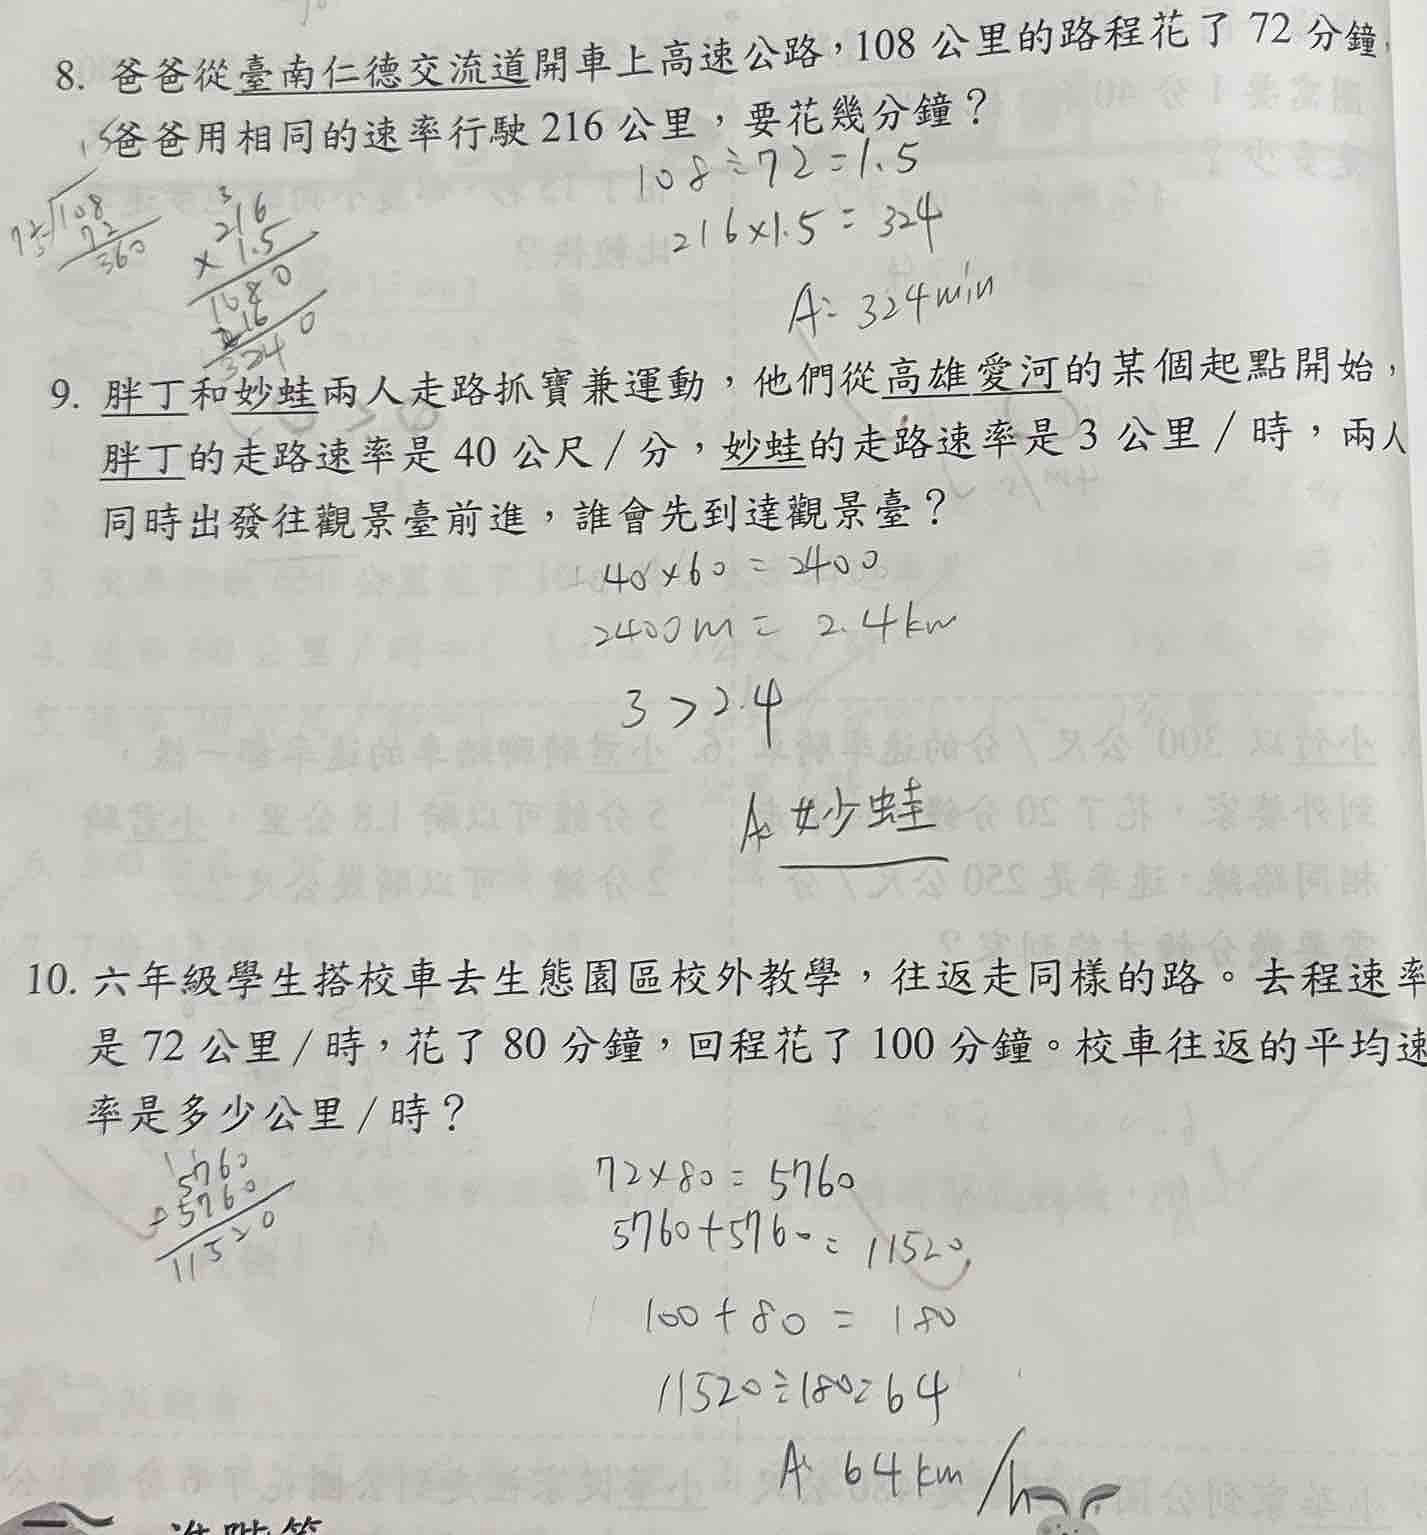 8. 爸爸從臺南仁德交流道開車上高速公路，108 公里的路程花了 72 分鐘，
爸爸用相同的速率行駛 216 公里，要花幾分鐘？
108÷72=1.5
216×1.5=324
A: 324min
1.5
72√108
72
360
216
×1.5
1080
216
3240
9. 胖丁和妙蛙兩人走路抓寶兼運動，他們從高雄愛河的某個起點開始，
胖丁的走路速率是 40 公尺／分，妙蛙的走路速率是 3 公里／時，兩人
同時出發往觀景臺前進，誰會先到達觀景臺？
40×60=2400
2400m=2.4km
3>2.4
A: 妙蛙
10. 六年級學生搭校車去生態園區校外教學，往返走同樣的路。去程速率
是 72 公里／時，花了 80 分鐘，回程花了 100 分鐘。校車往返的平均速
率是多少公里／時？
5760
+5760
11520
72×80=5760
5760+5760=11520
100+80=180
11520÷180=64
A: 64km/h